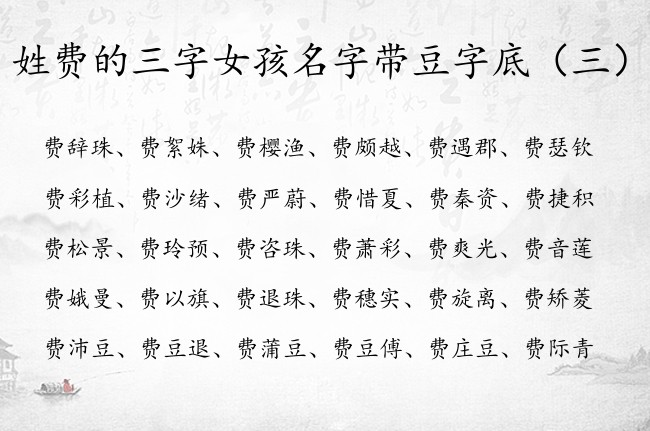 姓费的三字女孩名字带豆字底（三）
费辞珠、费絮姝、费樱渔、费颇越、费遇郡、费瑟钦
费彩植、费沙绪、费严蔚、费惜夏、费秦资、费捷积
费松景、费玲预、费咨珠、费萧彩、费爽光、费音莲
费娥曼、费以旗、费退珠、费穗实、费旋离、费矫菱
费沛豆、费豆退、费蒲豆、费豆傅、费庄豆、费际青